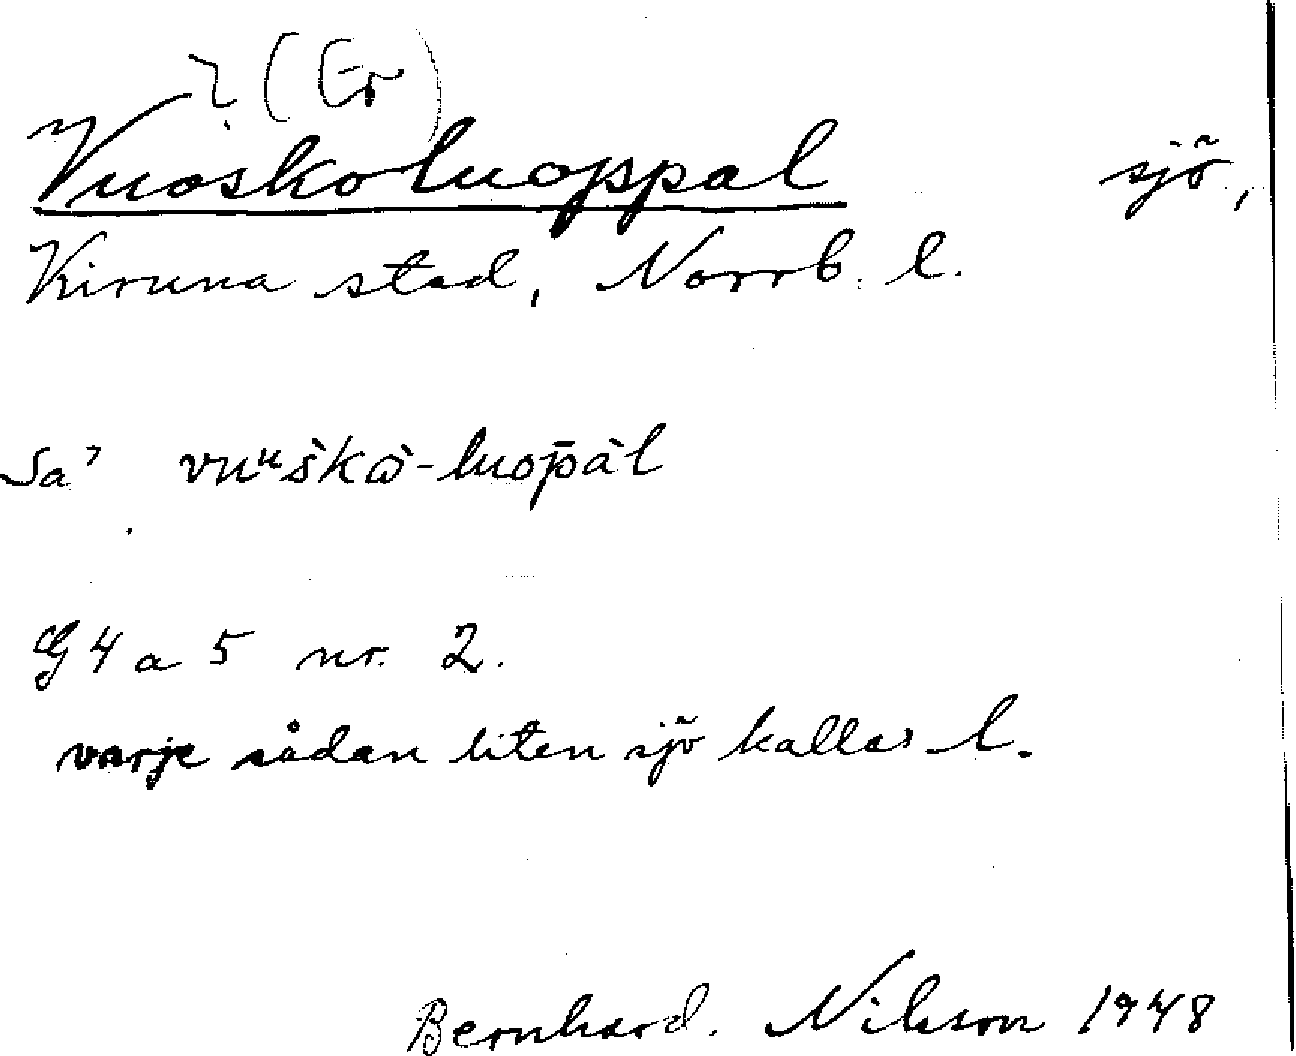 ? (Er)
Vuoskoluoppal sjö,
Kiruna stad, Norrb. l.
Sa' vuᵘškǡ-luop̄àl
G 4 a 5 nr. 2.
varje sådan liten sjö kallas l.
Bernhard. Nilsson 1948